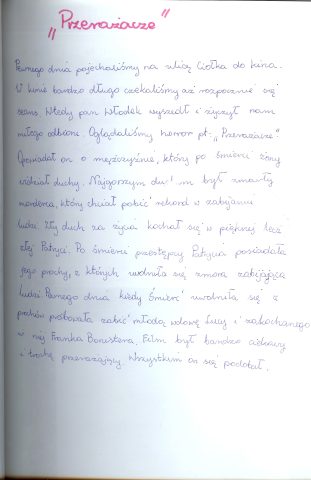 „Przerażacze”
Pewnego dnia pojechaliśmy na ulicę Ciołka do kina.
W kinie bardzo długo czekaliśmy aż rozpocznie się
seans. Wtedy pan Włodek wyszedł i życzył nam
miłego odbioru. Oglądaliśmy horror pt. „Przerażacze”.
Opowiadał on o mężczyźnie, który po śmierci żony
widział duchy. Najgorszym był zmarły
morderca, który chciał pobić rekord w zabijaniu
ludzi. Zły duch za życia kochał się w pięknej lecz
złej Patrycji. Po śmierci przestępcy Patrycja posiadała
jego prochy, z których uwolniła się zmora zabijająca
ludzi. Pewnego dnia kiedy śmierć uwolniła się z
prochów próbowała zabić młodą wdowę Lucy i zakochanego
w niej Franka Banistera. Film był bardzo ciekawy
i trochę przerażający. Wszystkim on się podobał.